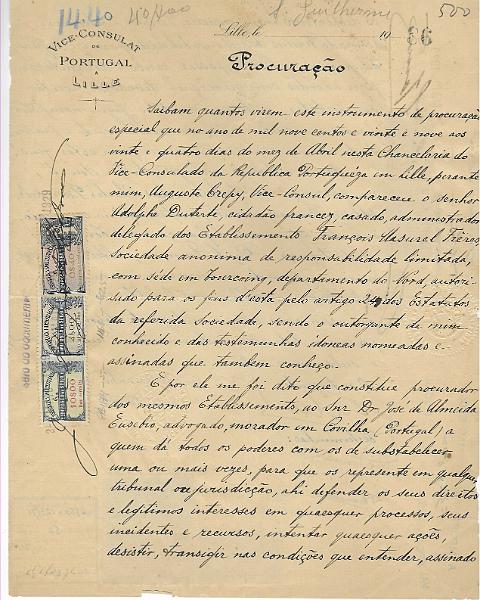 14.40
500
VICE-CONSULAT
DE
PORTUGAL
A
LILLE
Lille, le 19
86
Procuração
Saibam quantos virem este instrumento de procuração
especial que no ano de mil nove centos e vinte e nove aos
vinte e quatro dias do mez de Abril nesta Chancelaria do
Vice-Consulado da Republica Portugueza em Lille, perante
mim, Augusto Crepy, Vice-Consul, compareceu o senhor
Adolpho Duterte, cidadão francez, casado, administrador
delegado dos Etablissements François Masurel Frères
sociedade anonima de responsabilidade limitada,
com séde em Tourcoing, departamento do Nord, autori-
sado para os fins d'esta pelo artigo 24 dos Estatutos
da referida sociedade, sendo o outorgante de mim
conhecido e das testemunhas idoneas nomeadas e
assinadas que tambem conheço.
E por ele me foi dito que constitue procurador
dos mesmos Etablissements, ao Snr Dr José de Almeida
Eusebio, advogado, morador em Covilha, Portugal, a
quem dá todos os poderes com os de substabelecer
uma ou mais vezes, para que os represente em qualquer
tribunal ou jurisdicção, ahi defender os seus direitos
e legitimos interesses em quaesquer processos, seus
incidentes e recursos, intentar quaesquer ações,
desistir, transigir nas condições que entender, assinado